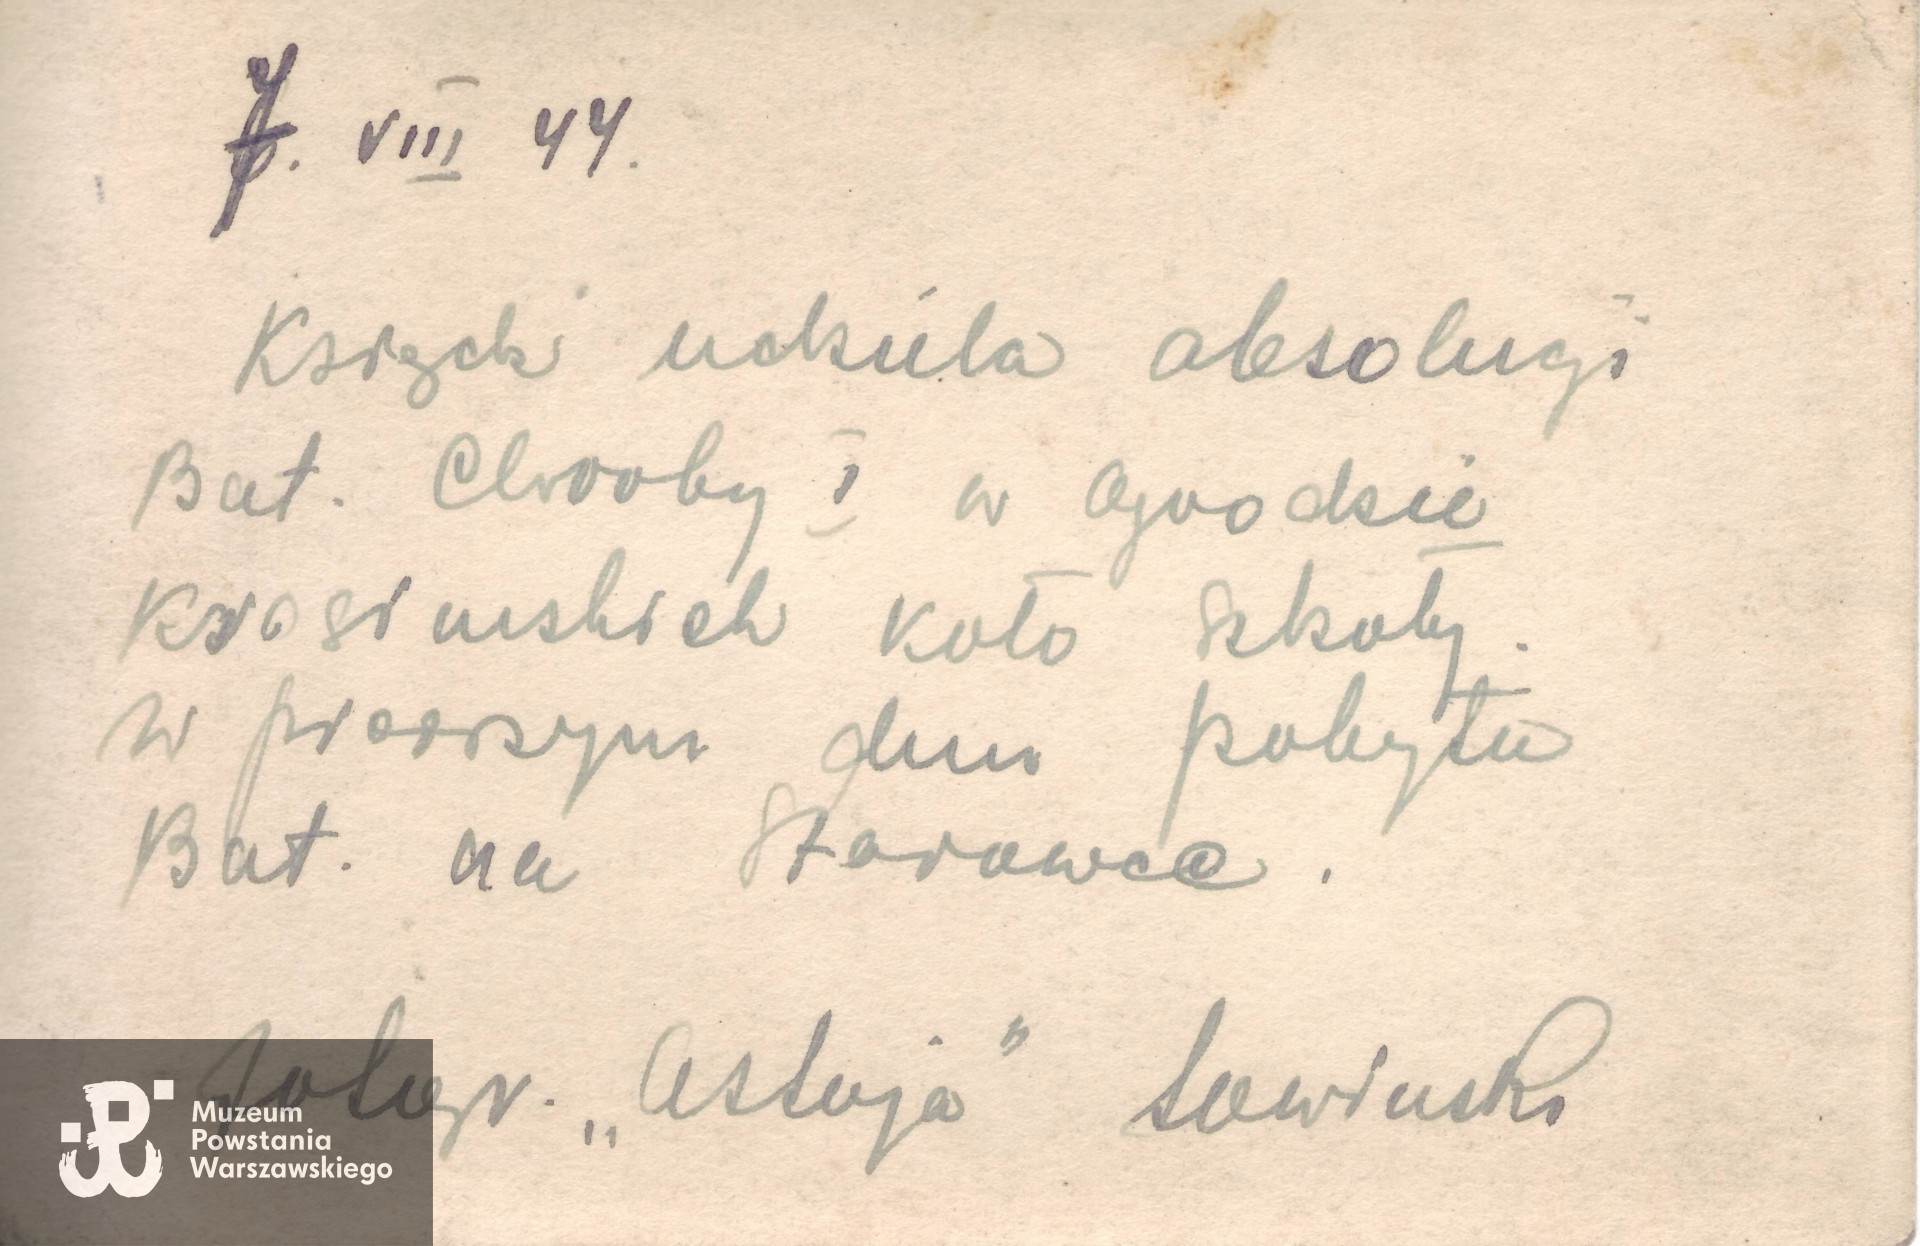 7. VIII 44.
Ksiądz udziela absolucji
Bat. Chrobry I w Ogrodzie
Krasińskich koło szkoły.
w pierwszym dniu pobytu
Bat. na Starówce.
Fotogr. „Ostoja" Łowiński
Muzeum
Powstania
Warszawskiego